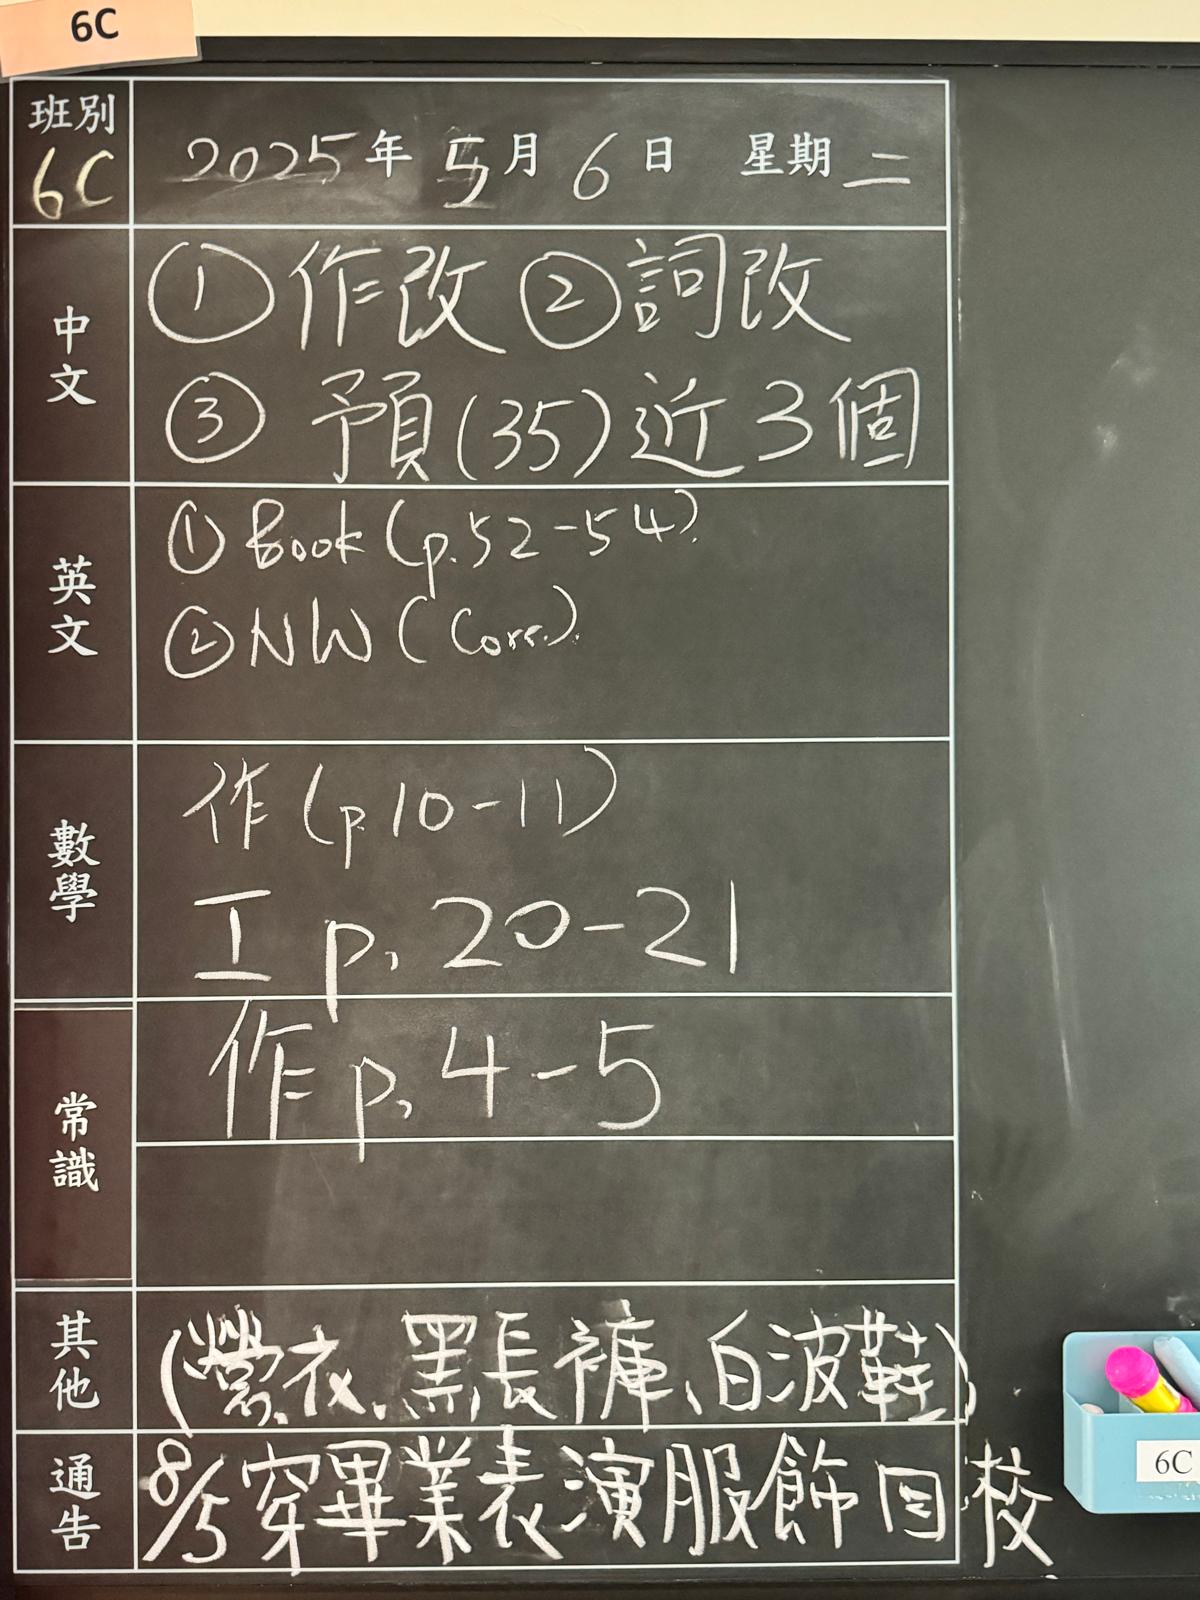 6C
班別 6C 2025年 5月 6日 星期二
中文
①作改 ②詞改
③ 預(35)近3個
英文
① Book (p.52-54)
② NW (Corr.)
數學
作 (p.10-11)
工 p. 20-21
常識
作 p. 4-5
其他
(營衣、黑長褲、白波鞋)
通告
8/5 穿畢業表演服飾回校
6C